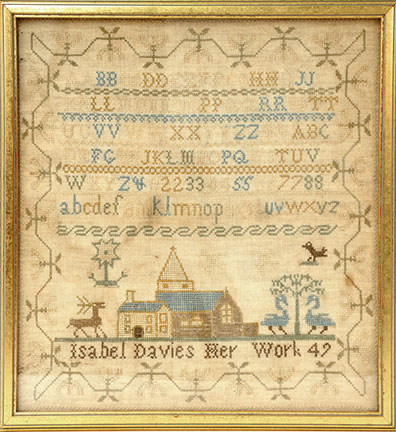 BB DD HH JJ
LL PP RR TT
VV XX ZZ ABC
FG JKLM PQ TUV
W Z& 2233 55 7788
abcdef klmnop uvwxyz
Isabel Davies Her Work 49